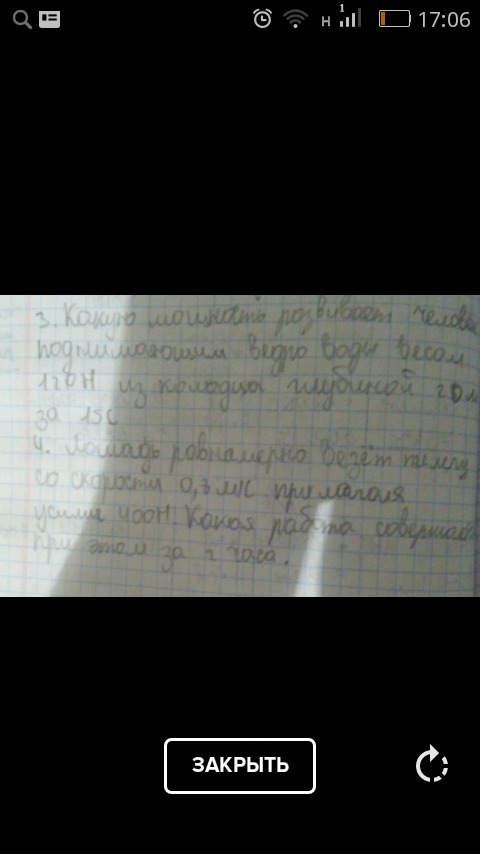 17:06
3. Какую мощность развивает челове
поднимающим ведро воды весом
120Н из колодца глубиной 20м
за 15с
4. Лошадь равнамерно везёт телегу
со скорости 0,3 м/с прилагоя
усилие 400Н. Какая работа совершае
при этом за 2 часа.
ЗАКРЫТЬ